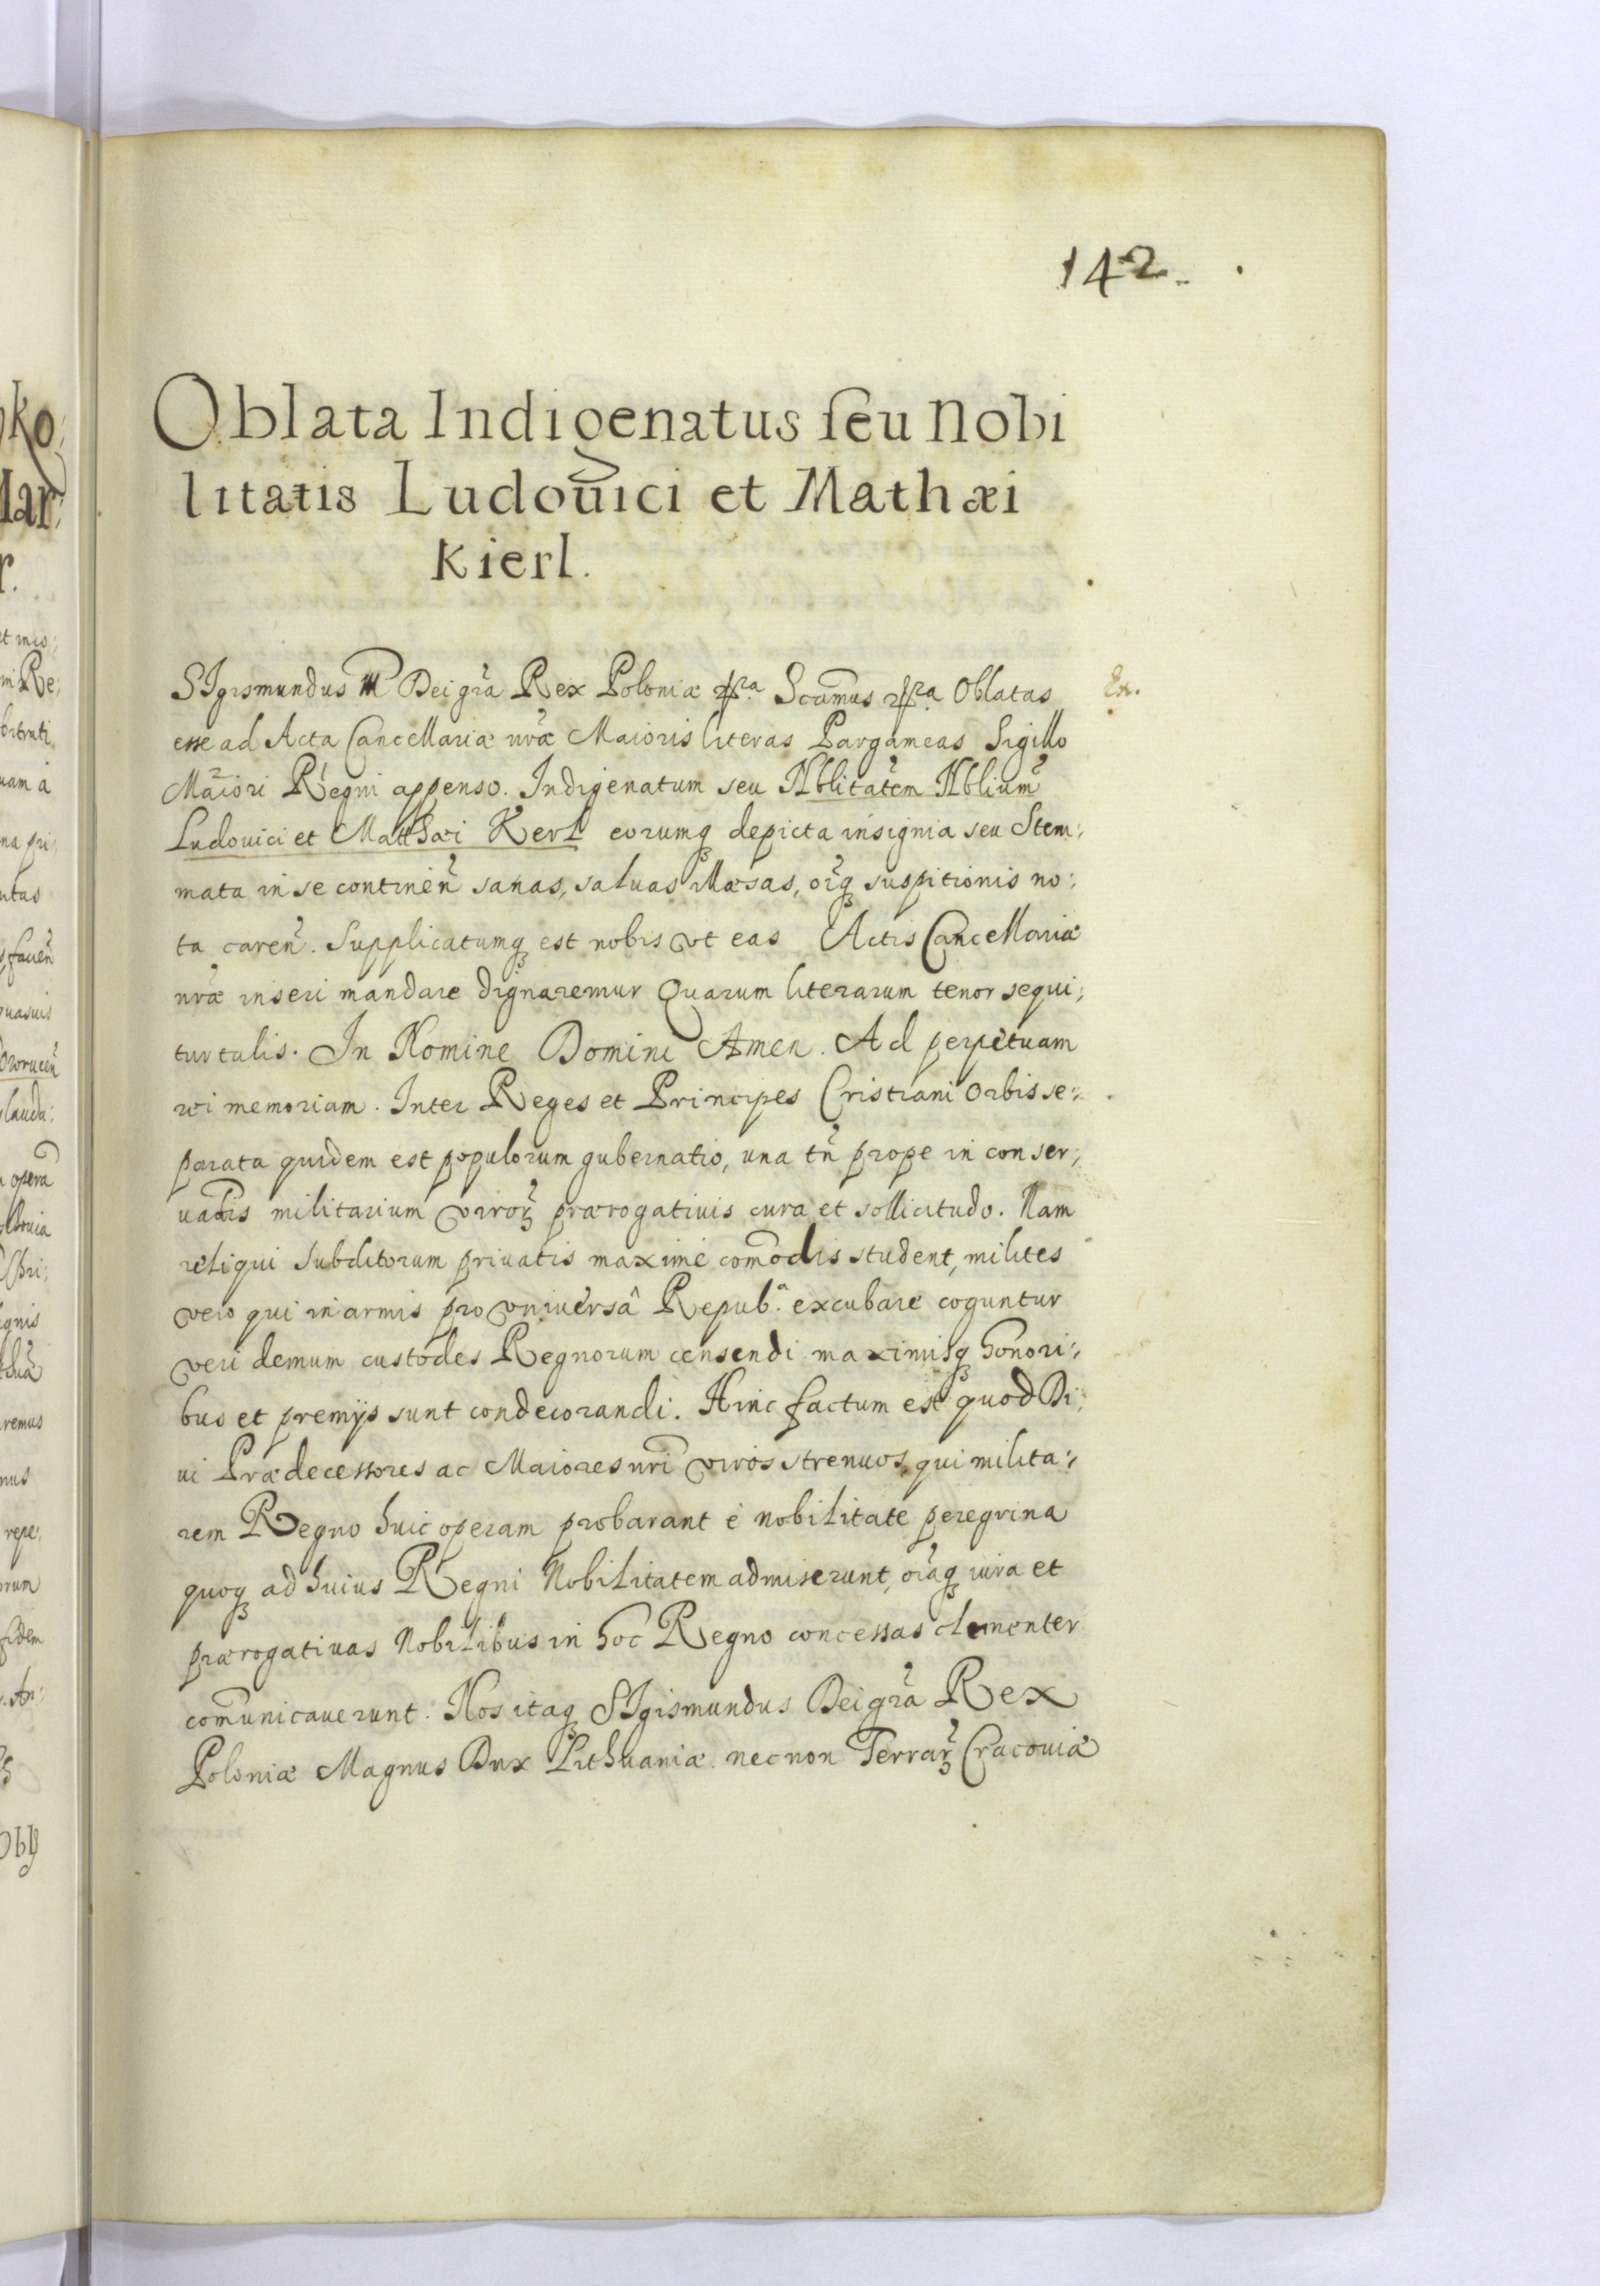 142.
Oblata Indigenatus seu Nobi
litatis Ludouici et Mathæi
Kierl.
SIgismundus III Dei gra Rex Poloniæ Scimus Oblatas
Ex.
esse ad Acta Cancellariæ nræ Maioris literas Pargameas Sigillo
Maiori Regni appenso. Indigenatum seu Nblitatem Nblium
Ludouici et Matthæi Kerl eorumq depicta insignia seu Stem:
mata in se continen sanas, saluas illæsas, oiq suspitionis no:
ta caren. Supplicatumq est nobis vt eas Actis Cancellariæ
nræ inseri mandare dignaremur Quarum literarum tenor sequi:
tur talis. In Nomine Domini Amen. Ad perpetuam
rei memoriam. Inter Reges et Principes Cristiani Orbis se:
parata quidem est populorum gubernatio, una tn prope in conser:
uadis militarium viror prærogatiuis cura et sollicitudo. Nam
reliqui subditorum priuatis maxime comodis student, milites
vero qui in armis pro vniuersâ Repub.a excubare coguntur
veri demum custodes Regnorum censendi maximisq honori:
bus et premijs sunt condecorandi. Hinc factum est quod Di:
ui Prædecessores ac Maiores nri viros strenuos, qui milita:
rem Regno huic operam probarant é nobilitate peregrina
quoq ad huius Regni Nobilitatem admiserunt, oiaq iura et
prærogatiuas Nobilibus in hoc Regno concessas clementer
comunicauerunt. Nos itaq SIgismundus Dei gra Rex
Poloniæ Magnus Dux Lithuaniæ necnon Terrar Cracouiæ